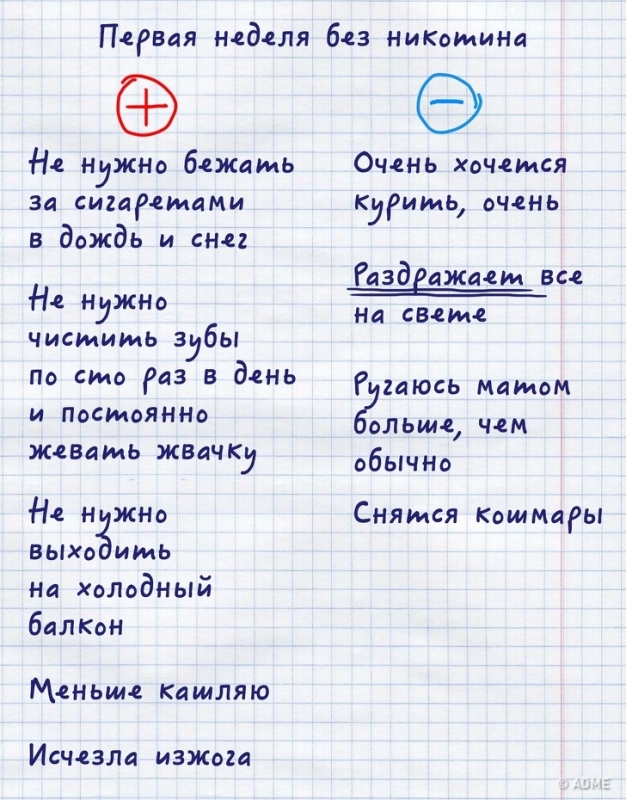 Первая неделя без никотина
+
Не нужно бежать
за сигаретами
в дождь и снег
Не нужно
чистить зубы
по сто раз в день
и постоянно
жевать жвачку
Не нужно
выходить
на холодный
балкон
Меньше кашляю
Исчезла изжога
−
Очень хочется
курить, очень
Раздражает все
на свете
Ругаюсь матом
больше, чем
обычно
Снятся кошмары
© ADME